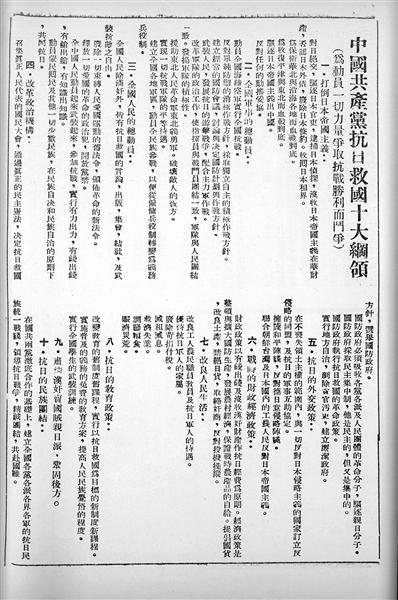 中國共產黨抗日救國十大綱領
（為動員一切力量爭取抗戰勝利而鬥爭）
一・打倒日本帝國主義：
對日絕交，驅逐日本官吏，逮捕日本偵探，沒收日本帝國主義在華財
產，否認日本外債，廢除日本條約。收回日本租界。
為保衛華北與沿海各地而血戰到底。
為收復平津與東北而血戰到底。
驅逐日本帝國主義出中國
反對任何的動搖妥協。
二・全國軍事的總動員：
動員全國海陸空軍實行全國抗戰。
反對單純防禦的消極作戰方針，採取獨立自主的積極作戰方針。
建立經常的國防會議，討論與決定國防計劃與作戰方針。
武裝人民，發展抗日的游擊戰爭，配合主力軍作戰。
改革軍隊的政治工作，使指揮員與戰鬥員團結一致，軍隊與人民團結
一致，發揚軍隊的積極性。
援助東北人民革命軍東北義勇軍。破壞敵人的後方。
實現一切抗戰軍隊的平等待遇。
建立全國各地軍區，動員全民族參戰，以便從僱傭兵役制轉變為義務
兵役制。
三・全國人民的總動員：
全國人民除漢奸外，皆有抗日救國的言論，出版，集會，結社，及武
裝抗敵之自由。
廢除一切束縛人民愛國運動的舊法令，頒佈革命的新法令。
釋放一切愛國的革命的政治犯，開放黨禁。
全中國人民動員起來武裝起來，參加抗戰，實行有力出力，有錢出錢
，有槍出槍，有知識出知識。
動員蒙民回民及其他一切少數民族，在民族自決和民族自治的原則下
，共同抗日。
四・改革政治機構：
召集真正人民代表的國民大會，通過真正的民主憲法，決定抗日救國
方針，選舉國防政府。
國防政府必須吸收各黨各派及人民團體的革命分子，驅逐親日分子。
國防政府採取民主集中制，他是民主的，但又是集中的。
國防政府執行抗日救國的革命政策。
實行地方自治，剷除貪官污吏，建立廉潔政府。
五・抗日的外交政策：
在不喪失領土主權的範圍內，與一切反對日本侵略主義的國家訂立反
侵略的同盟，及抗日的軍事互助協定。
擁護和平陣線，反對德日意侵略陣線。
聯合朝鮮台灣及日本國內的工農人民反對日本帝國主義。
六・戰時的財政經濟政策：
財政政策以有錢出錢及沒收漢奸財產作抗日經費為原則。經濟政策是
整頓與擴大國防生產，發展農村經濟，保證戰時農產品的自給。提倡國貨
，改良土產。禁絕日貨，取締奸商，反對投機操縱。
七・改良人民生活：
改良工人農民職員教員及抗日軍人的待遇。
優待抗日軍人的家屬。
廢除苛捐雜稅。
減租減息。
救濟失業。
調節糧食。
賑濟災荒。
八・抗日的教育政策：
改變教育的舊制度舊課程，實行以抗日救國為目標的新制度新課程。
實施普及的義務的免費的教育方案，提高人民民族覺悟的程度。
實行全國學生的武裝訓練。
九・肅清漢奸賣國賊親日派，鞏固後方。
十・抗日的民族團結：
在國共兩黨澈底合作的基礎上，建立全國各黨各派各界各軍的抗日民
族統一戰線，領導抗日戰爭，精誠團結，共赴國難。